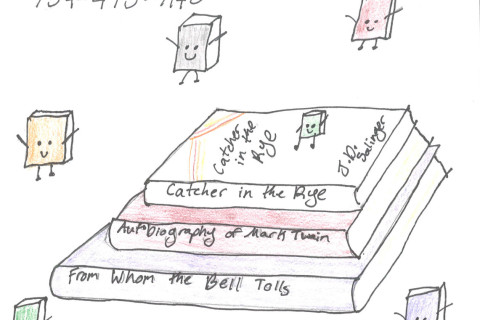 Catcher
in the
Rye
J.D.
Salinger
Catcher in the Rye
Autobiography of Mark Twain
From Whom the Bell Tolls